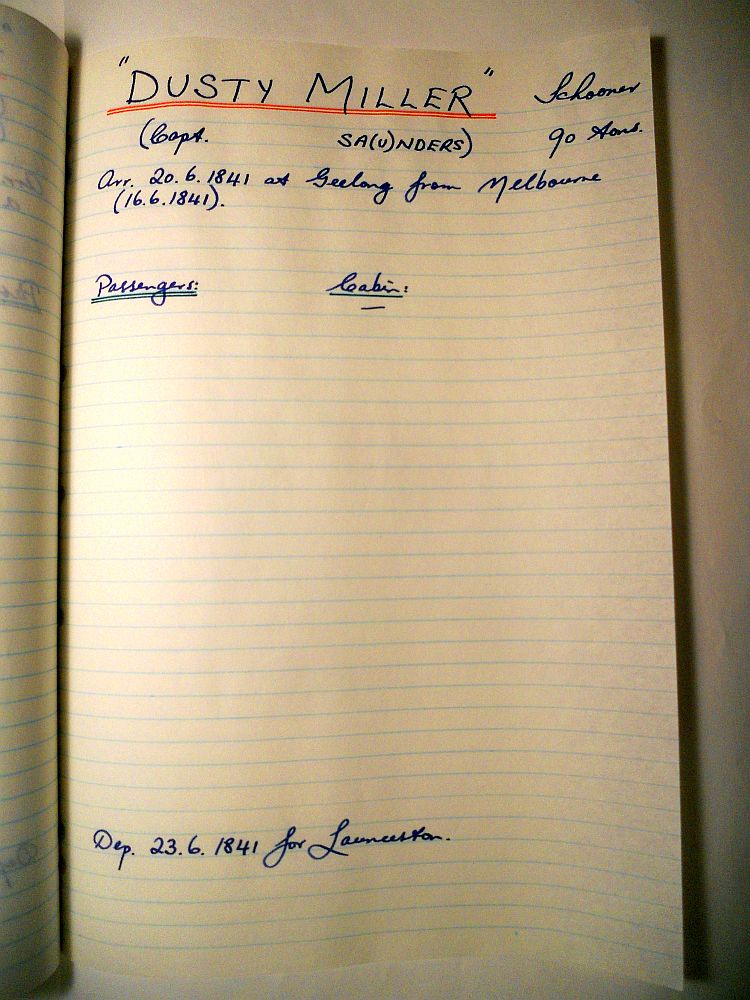 "DUSTY MILLER" Schooner
(Capt. SA(U)NDERS) 90 tons.
Arr. 20.6.1841 at Geelong from Melbourne
(16.6.1841).
Passengers: Cabin:
—
Dep. 23.6.1841 for Launceston.